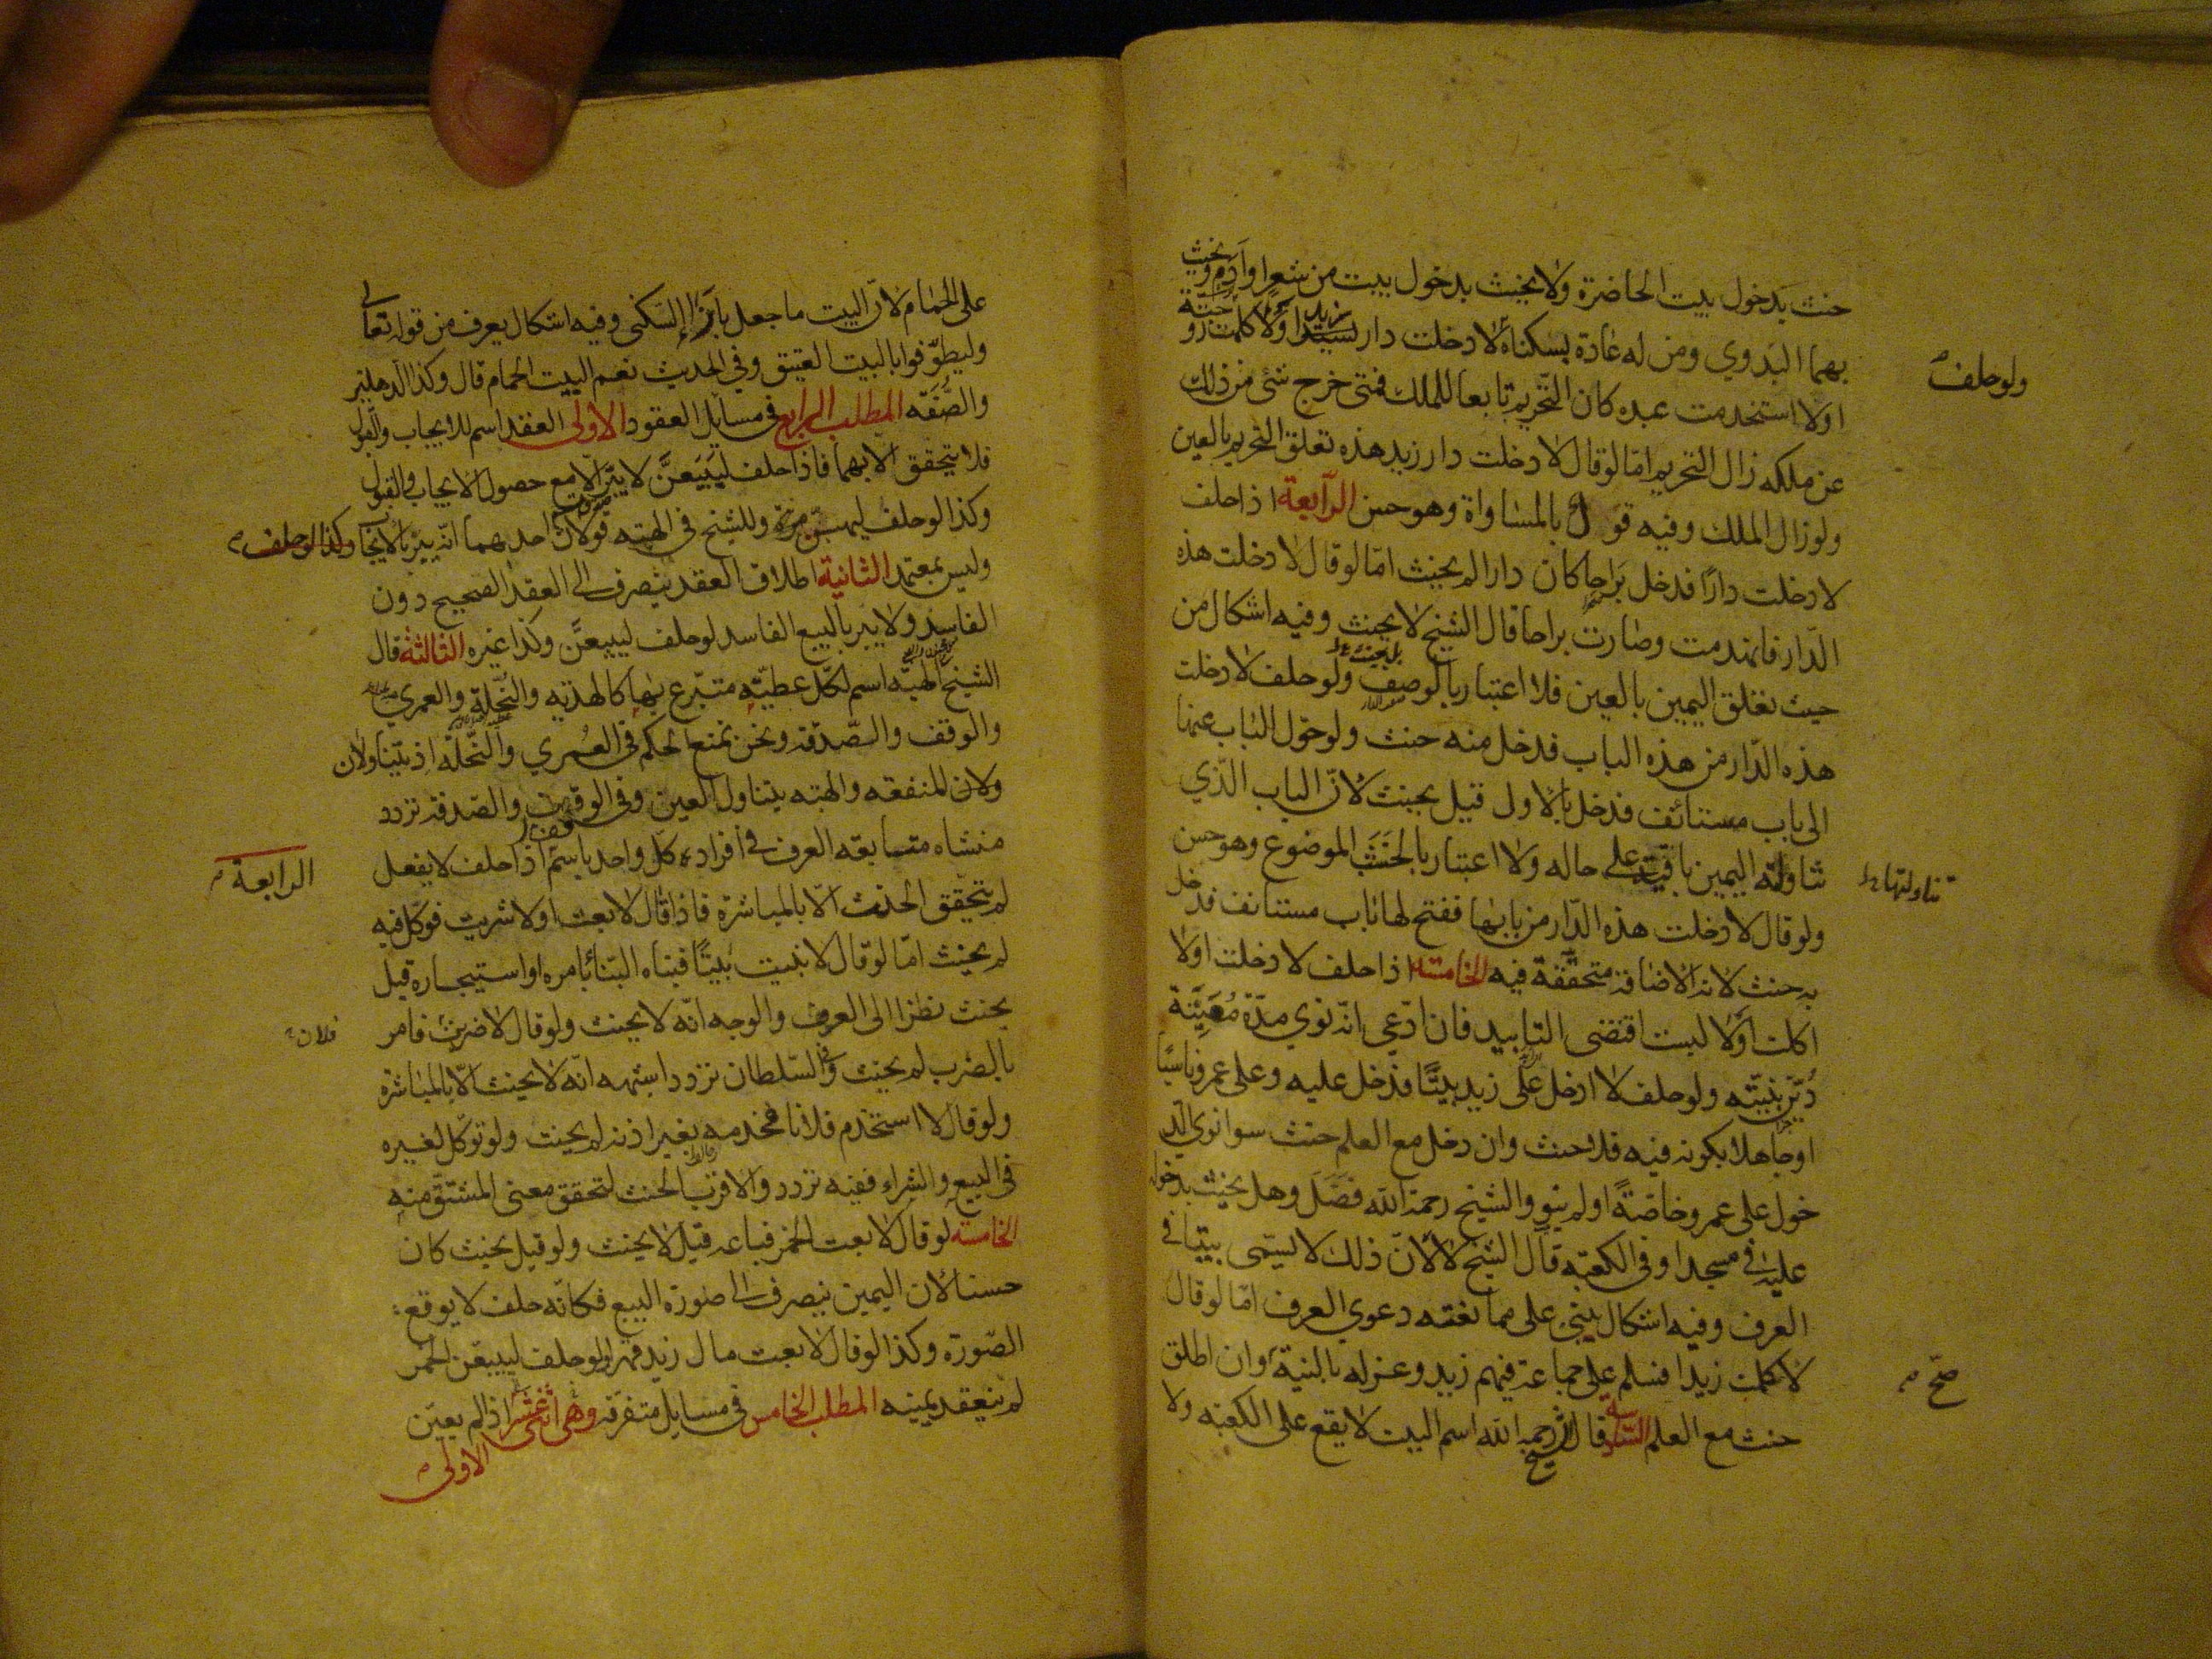 حنث بدخول بيت الحاضرة ولا يحنث بدخول بيت من شعر او ادم ويحنث
بهما البدوي ومن له عادة بسكناه لا دخلت دار زيد او لا كلمت زوجته
ولو حلف
اولا استخدمت عبده كان التحريم تابعا للملك فمتى خرج شئ من ذلك
عن ملكه زال التحريم امّا لو قال لا دخلت دار زيد هذه تعلق التحريم بالعين
ولو زال الملك وفيه قول بالمساواة وهو حسن الرّابعة اذا حلف
لا دخلت دارًا فدخل بَراحا كان دارا لم يحنث امّا لو قال لا دخلت هذه
الدّار فانهدمت وصارت براحا قال الشيخ لا يحنث وفيه اشكال من
حيث تعلق اليمين بالعين فلا اعتبار بالوصف ولو حلف لا دخلت
هذه الدّار من هذه الباب فدخل منه حنث ولو حوّل الباب عنها
الى باب مستانف فدخل بالاول قيل يحنث لانّ الباب الذي
تناولته اليمين باقية على حاله ولا اعتبار بالخشب الموضوع وهو حسن
تناولتها
ولو قال لا دخلت هذه الدّار من بابها ففتح لها باب مستانف فدخل
به حنث لانه الاضافة متحققة فيه الخامسة اذا حلف لا دخلت اولا
اكلت اولا لبست اقتضى التابيد فان ادّعى انه نوى مدّة مُعَيّنة
دُيّن بنيّته ولو حلف لا ادخل على زيد بيتًا فدخل عليه وعلى عمرو ناسيًا
او جاهلا بكونه فيه فلا حنث وان دخل مع العلم حنث سوا نوى الد
خول على عمرو خاصّةً او لم ينو والشيخ رحمه الله فصّل وهل يحنث بدخوله
عليه في مسجد او في الكعبة قال الشيخ لا لانّ ذلك لا يسمّى بيتا في
العرف وفيه اشكال يبنى على ممانعته دعوى العرف امّا لو قال
لا كلمت زيدا فسلم على جماعة فيهم زيد وعزله بالنية وان اطلق
صح
حنث مع العلم السادسة قال الشيخ رحمه الله اسم البيت لا يقع على الكعبة ولا
على الحمام لانّ البيت ما جعل بازاء السكنى وفيه اشكال يعرف من قوله تعالى
وليطّوّفوا بالبيت العتيق وفي الحديث نعم البيت الحمام قال وكذا الدهليز
والصّفّة المطلب الرابع في مسايل العقود الاولى العقد اسم للايجاب والقبول
فلا يتحقق الا بهما فاذا حلف ليبيعنّ لا يبرّ الا مع حصول الايجاب والقبول
وكذا لو حلف ليهبنّ وللشيخ في الهبة قولان احدهما انه يبر بالايجاب
وكذا لو حلف
وليس بمعتمد الثانية اطلاق العقد ينصرف الى العقد الصحيح دون
الفاسد ولا يبر بالبيع الفاسد لو حلف ليبيعنّ وكذا غيره الثالثة قال
الشيخ الهبة اسم لكلّ عطيّة متبرّع بها كالهدية والنّحلة والعمرى
والوقف والصّدقة ونحن نمنع الحكم في العُمرى والنّحلة اذ يتناولان
ولان للمنفعة والهبة يتناول العين وفي الوقف والصّدقة تردد
منشاه متابعة العرف في افراده كلّ واحد باسم اذا حلف لا يفعل
الرابعة
لم يتحقق الحنث الّا بالمباشرة فاذا قال لا بعت او لا شريت فوكّل فيه
لم يحنث امّا لو قال لا بنيت بيتًا فبناه البنّاء بامره او استيجاره قيل
يحنث نظرا الى العرف والوجه انّه لا يحنث ولو قال لا ضربت فامر
فلان
بالضرب لم يحنث وفي السّلطان تردد اشبهه انّه لا يحنث الّا بالمباشرة
ولو قال لا استخدم فلانا فخدمه بغير اذنه لم يحنث ولو توكّل لغيره
في البيع والشراء ففيه تردد والاقرب الحنث لتحقق معنى المشتقّ منه
الخامسة لو قال لا بعت الخمر فباعه قيل لا يحنث ولو قيل يحنث كان
حسنا لان اليمين ينصرف الى صورة البيع فكانّه حلف لا يوقع
الصّورة وكذا لو قال لا بعت مال زيد قهرا ولو حلف ليبيعن الخمر
لم ينعقد يمينه المطلب الخامس في مسايل متفرقة وهي اثنى عشر اذا لم يعين
الاولى